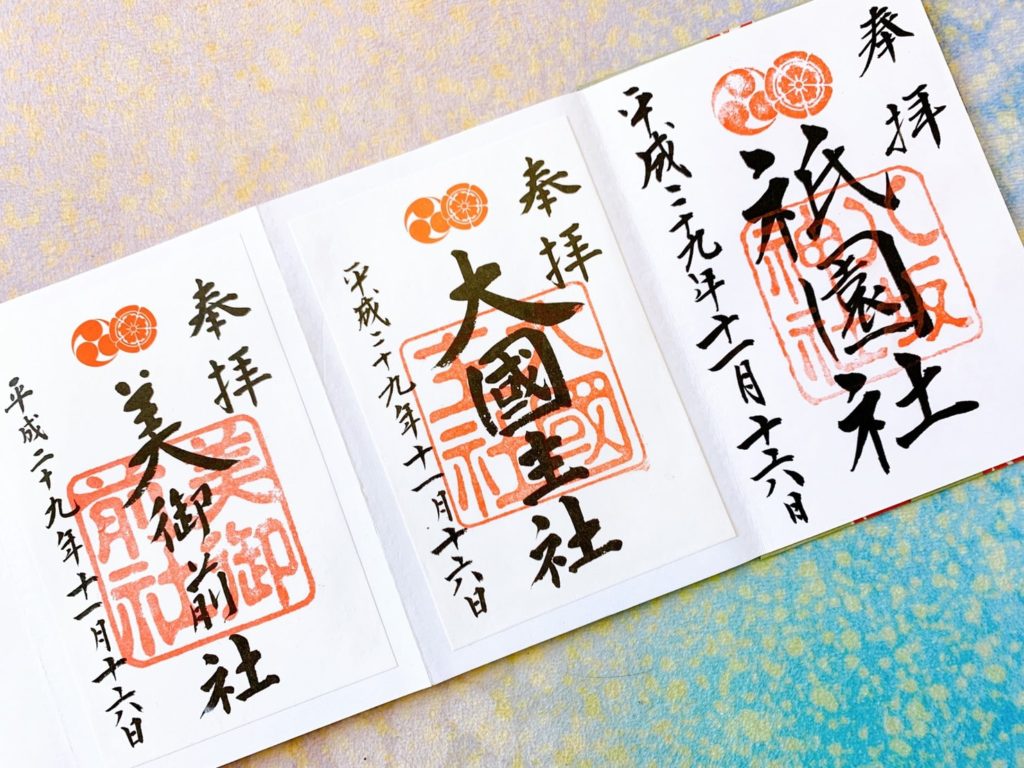 奉拝
祇園社
八坂神社
平成二十九年十一月十六日
奉拝
大國主社
大國主社
平成二十九年十一月十六日
奉拝
美御前社
美御前社
平成二十九年十一月十六日